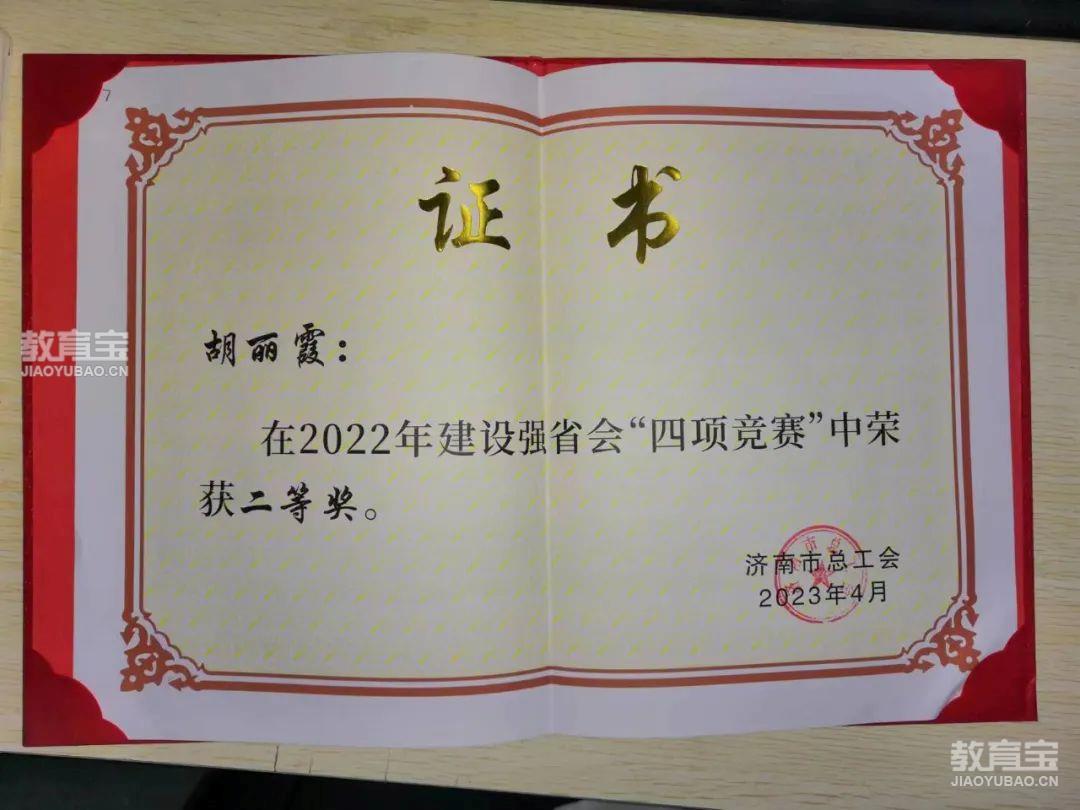 证书
胡丽霞：
在2022年建设强省会“四项竞赛”中荣
获二等奖。
济南市总工会
2023年4月
教育宝
JIAOYUBAO.CN
教育宝
JIAOYUBAO.CN